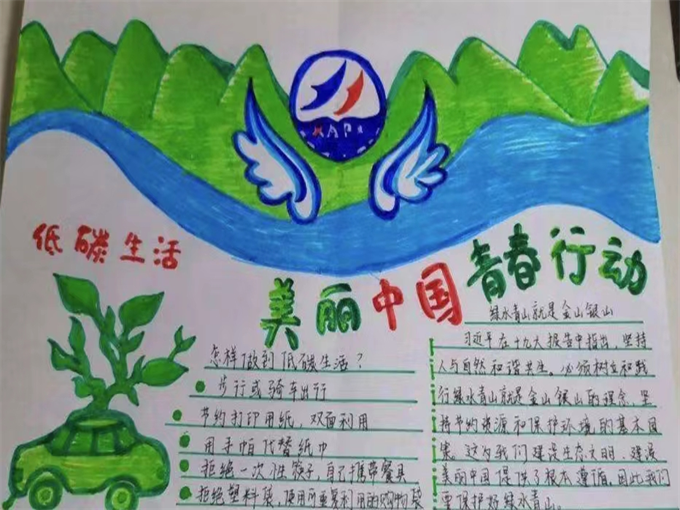 低碳生活
美丽中国青春行动
怎样做到低碳生活？
步行或骑车出行
节约打印用纸，双面利用
用手帕代替纸巾
拒绝一次性筷子，自己携带餐具
拒绝塑料袋，使用可重复利用的购物袋
绿水青山就是金山银山
习近平在十九大报告中指出，坚持
人与自然和谐共生。必须树立和践
行绿水青山就是金山银山的理念，坚
持节约资源和保护环境的基本国
策。这为我们建设生态文明、建设
美丽中国提供了根本遵循，因此我们
要保护好绿水青山。